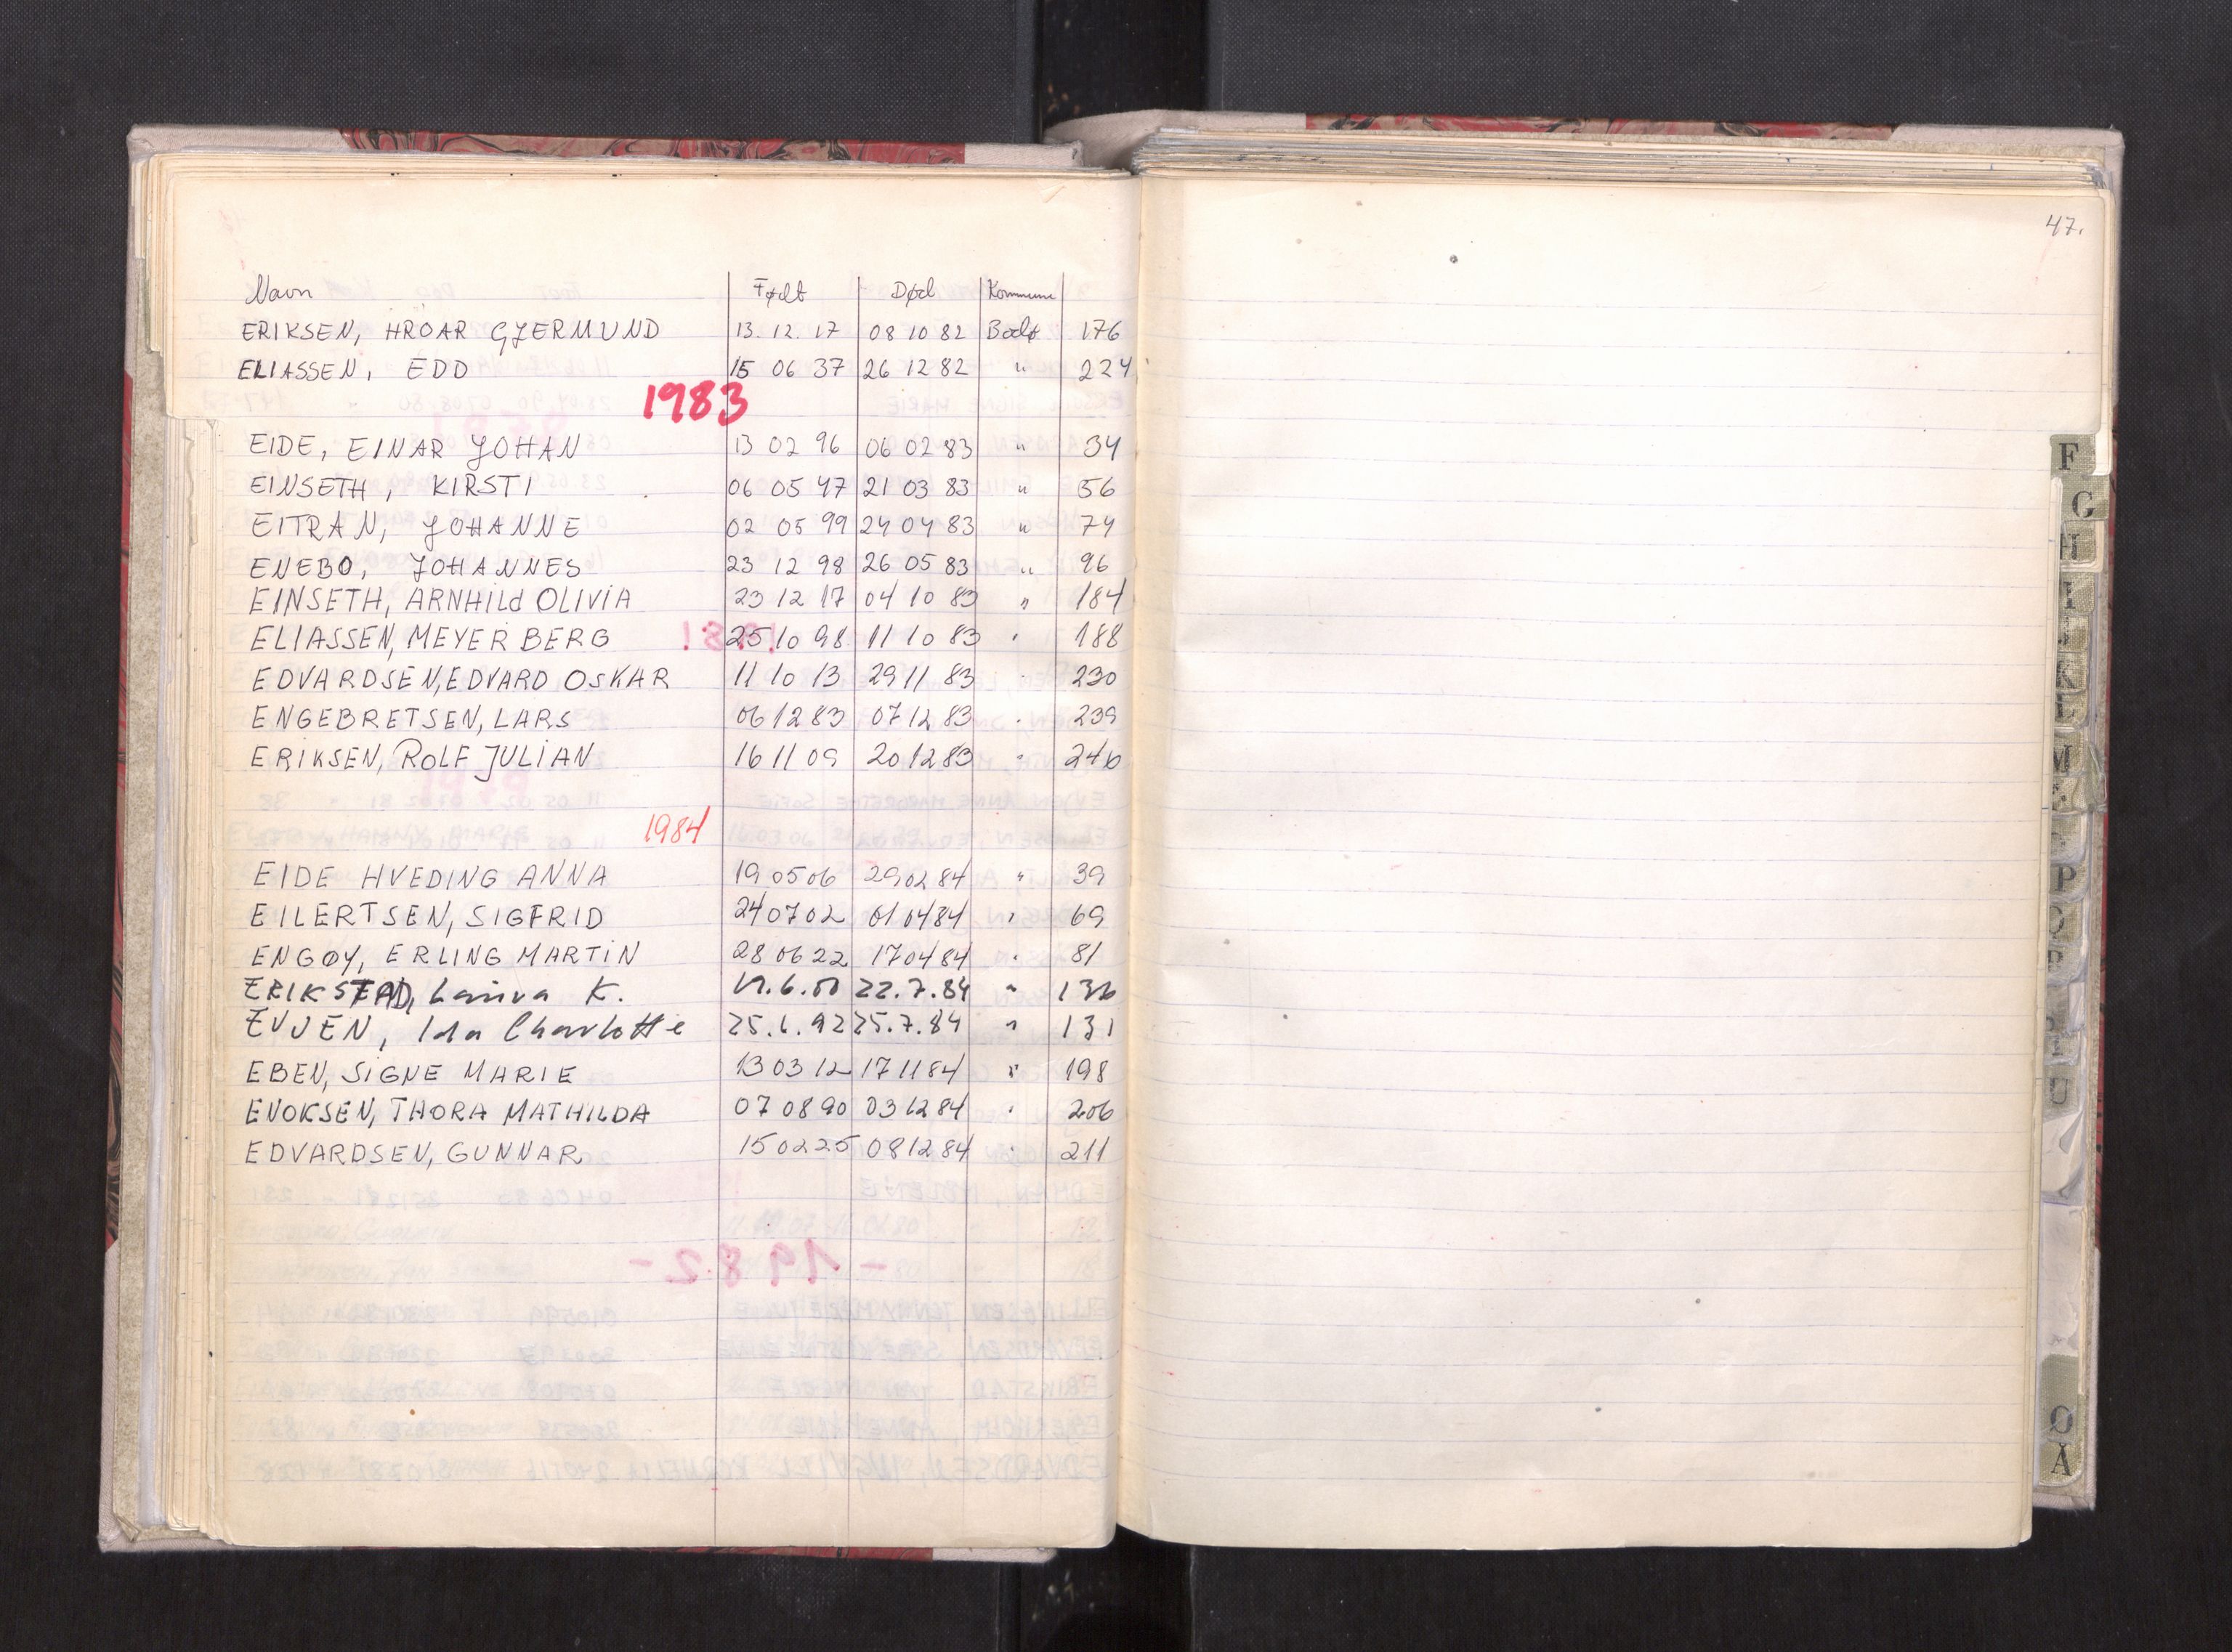 47.
Navn Født Død Kommune
ERIKSEN, HROAR GJERMUND 13. 12. 17 08 10 82 Bodø 176
ELIASSEN, EDD 15 06 37 26 12 82 " 224
1983
EIDE, EINAR JOHAN 13 02 96 06 02 83 " 34
EINSETH, KIRSTI 06 05 47 21 03 83 " 56
EITRAN, JOHANNE 02 05 99 24 04 83 " 74
ENEBO, JOHANNES 23 12 98 26 05 83 " 96
EINSETH, ARNHILd OLIViA 23 12 17 04 10 83 " 184
ELIASSEN, MEYER BERG 25 10 98 11 10 83 " 188
EDVARDSEN, EDVARD OSKAR 11 10 13 29 11 83 " 230
ENGEBRETSEN, LARS 06 12 83 07 12 83 " 239
ERiKSEN, ROLF JULiAN 16 11 09 20 12 83 "
1984
EIDE HVEDING ANNA 19 05 06 29 02 84 " 39
EILERTSEN, SIGFRID 24 07 02 01 04 84 " 69
ENGØY, ERLING MARTiN 28 06 22 17 04 84 " 81
ERIKSTAD, K. 22.7.84 "
EVJEN, Ida Charlotte 25.6.92 25.7.84 " 131
EBEN, SiGNE MARIE 13 03 12 17 11 84 " 198
ENOKSEN, THORA MATHILDA 07 08 90 03 12 84 " 206
EDVARDSEN, GUNNAR 15 02 25 08 12 84 " 211
F
G
H
I
K
L
M
P
U
Ø
Å